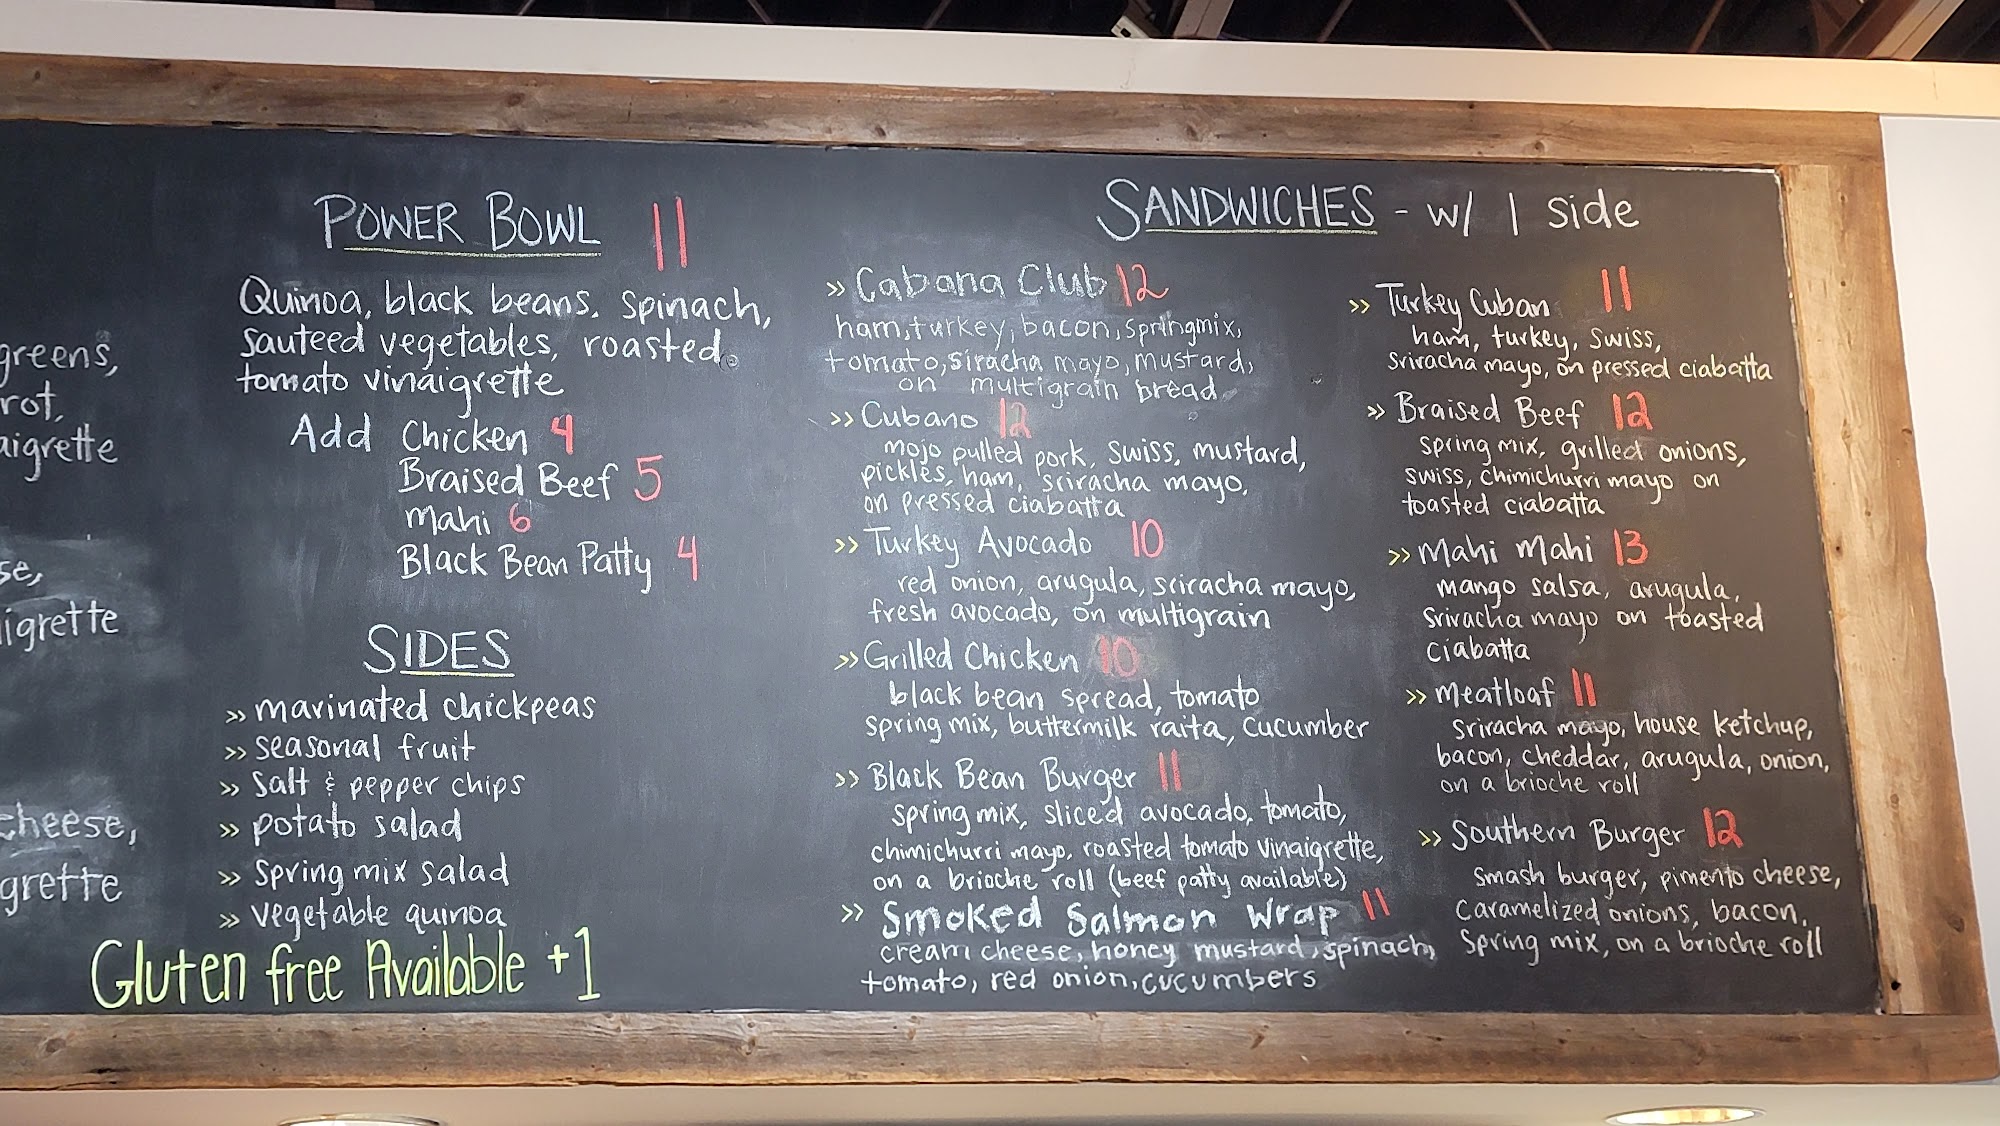 greens,
rot,
aigrette
se,
igrette
cheese,
grette
POWER BOWL 11
Quinoa, black beans, spinach,
sauteed vegetables, roasted
tomato vinaigrette
Add Chicken 4
Braised Beef 5
Mahi 6
Black Bean Patty 4
SIDES
» marinated chickpeas
» seasonal fruit
» Salt & pepper chips
» potato salad
» Spring mix salad
» vegetable quinoa
Gluten free Available +1
SANDWICHES - w/ 1 side
» Cabana Club 12
ham, turkey, bacon, springmix,
tomato, siracha mayo, mustard,
on multigrain bread
» Cubano 12
mojo pulled pork, swiss, mustard,
pickles, ham, sriracha mayo,
on pressed ciabatta
» Turkey Avocado 10
red onion, arugula, sriracha mayo,
fresh avocado, on multigrain
» Grilled Chicken 10
black bean spread, tomato
spring mix, buttermilk raita, cucumber
» Black Bean Burger 11
spring mix, sliced avocado, tomato,
chimichurri mayo, roasted tomato vinaigrette,
on a brioche roll (beef patty available)
» Smoked Salmon Wrap 11
cream cheese, honey mustard, spinach,
tomato, red onion, cucumbers
» Turkey Cuban 11
ham, turkey, swiss,
sriracha mayo, on pressed ciabatta
» Braised Beef 12
spring mix, grilled onions,
swiss, chimichurri mayo on
toasted ciabatta
» Mahi Mahi 13
mango salsa, arugula,
sriracha mayo on toasted
ciabatta
» Meatloaf 11
sriracha mayo, house ketchup,
bacon, cheddar, arugula, onion,
on a brioche roll
» Southern Burger 12
Smash burger, pimento cheese,
caramelized onions, bacon,
Spring mix, on a brioche roll